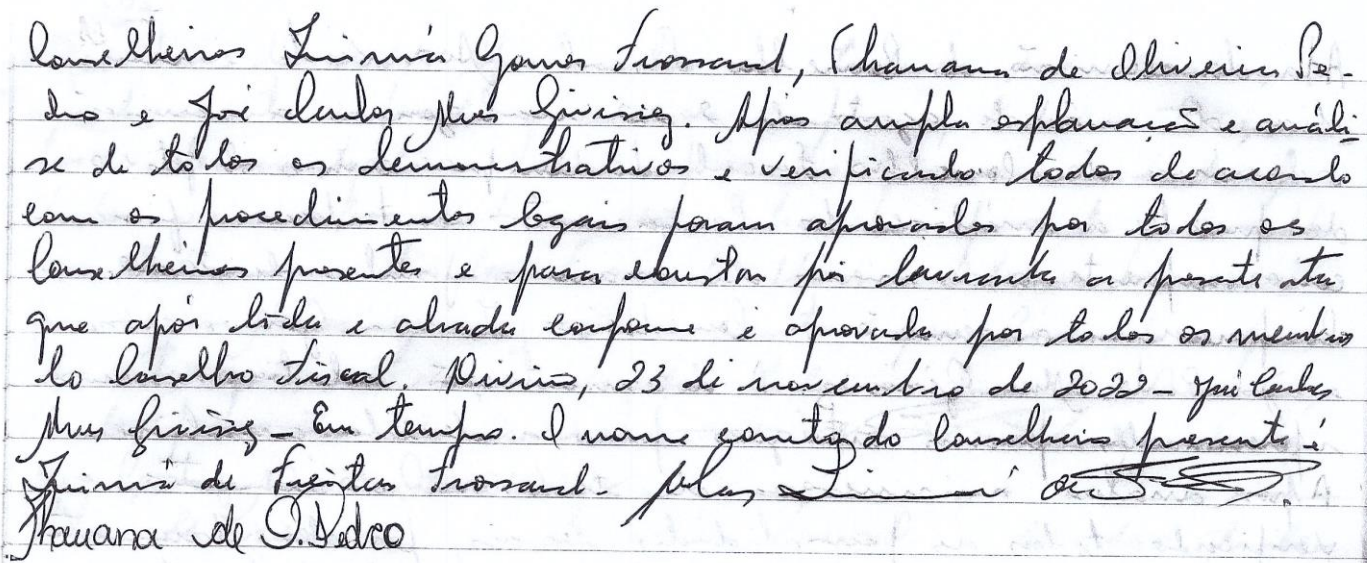 Conselheiros Jurimá Gomes Frossard, Thauana de Oliveira Pe-
dro e José Carlos Alves. Após ampla esplanação e análi-
se de todos os demonstrativos e verificando todos de acordo
com os procedimentos legais foram aprovados por todos os
Conselheiros presentes e para constar foi lavrada a presente ata
que após lida e achada conforme é aprovada por todos os membros
do Conselho Fiscal. Divino, 23 de novembro de 2022 - José Carlos
Alves - Em tempo. O nome correto do Conselheiro presente é
de Freitas Frossard.
Thauana de O. Pedro